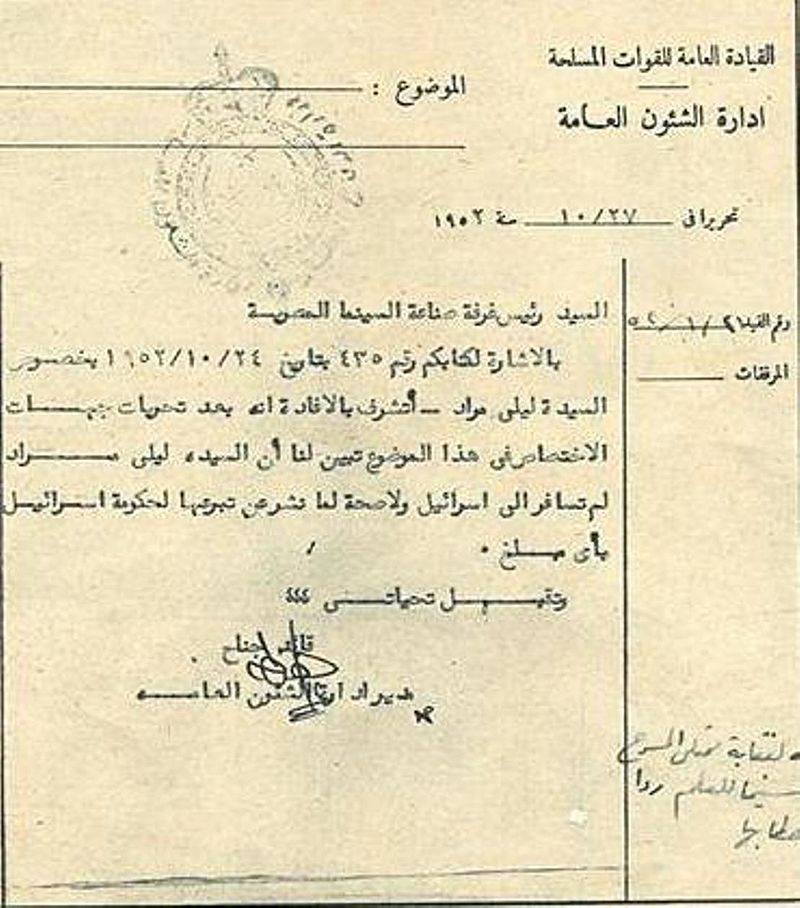 القيادة العامة للقوات المسلحة
ادارة الشئون العامة
الموضوع :
تحريرا فى ١٠/٢٧ سنة ١٩٥٢
رقم القيد
المرفقات
السيد رئيس غرفة صناعة السينما المصرية
بالاشارة لكتابكم رقم ٤٣٥ بتاريخ ١٩٥٢/١٠/٢٤ بخصوص
السيدة ليلى مراد - أتشرف بالافادة انه بعد تحريات جهات
الاختصاص فى هذا الموضوع تبين لنا أن السيده ليلى مراد
لم تسافر الى اسرائيل ولا صحة لما نشر عن تبرعها لحكومة اسرائيل
بأى مبلغ .
وتقبل تحياتى ،،،
قائد جناح
مدير ادارة الشئون العامه
لنقابة ممثلى المسرح
للعلم ردا